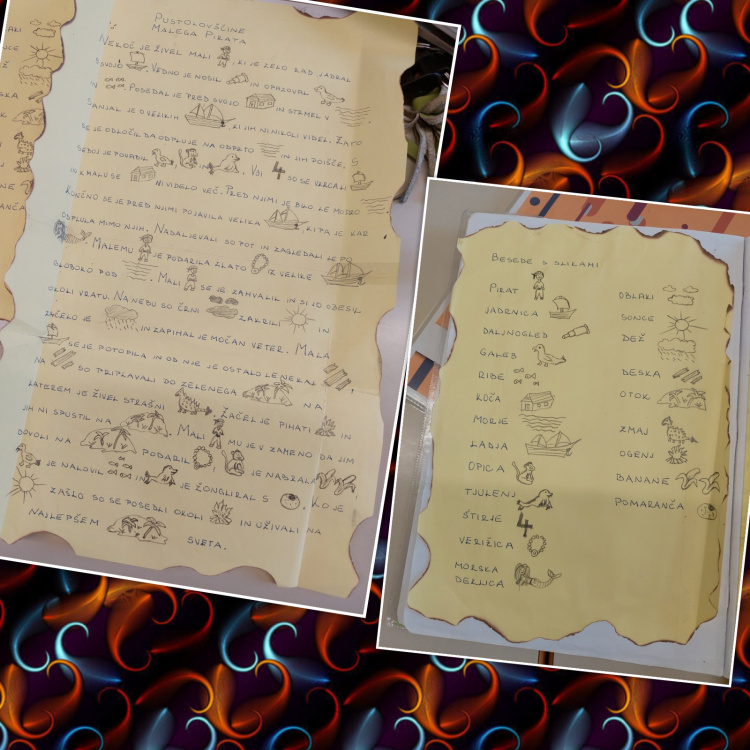 PUSTOLOVŠČINE
MALEGA PIRATA
NEKOČ JE ŽIVEL MALI , KI JE ZELO RAD JADRAL
S SVOJO . VEDNO JE NOSIL IN OPAZOVAL
IN . POSEDAL JE PRED SVOJO IN STRMEL V
SANJAL JE O VELIKIH , KI JIH NI NIKOLI VIDEL. ZATO
SE JE ODLOČIL DA ODPLUJE NA ODPRTO IN JIH POIŠČE. S
SEBOJ JE POVABIL , IN . VSI 4 SO SE VKRCALI
IN KMALU SE NI VIDELO VEČ. PRED NJIMI JE BILO LE MODRO
KONČNO SE JE PRED NJIMI POJAVILA VELIKA , KI PA JE KAR
ODPLULA MIMO NJIH. NADALJEVALI SO POT IN ZAGLEDALI LEPO
. MALEMU JE PODARILA ZLATO IZ VELIKE
GLOBOKO POD . MALI SE JE ZAHVALIL IN SI JO OBESIL
OKOLI VRATU. NA NEBU SO ČRNI ZAKRILI IN
ZAČELO JE IN ZAPIHAL JE MOČAN VETER. MALA
SE JE POTOPILA IN OD NJE JE OSTALO LE NEKAJ
NA SO PRIPLAVALI DO ZELENEGA NA
KATEREM JE ŽIVEL STRAŠNI . ZAČEL JE PIHATI IN
JIH NI SPUSTIL NA . MALI MU JE V ZAMENO DA JIM
DOVOLI NA PODARIL . JE NABRALA
JE NALOVIL IN JE ŽONGLIRAL S . KO JE
ZAŠLO SO SE POSEDLI OKOLI IN UŽIVALI NA
NAJLEPŠEM SVETA.
BESEDE S SLIKAMI
PIRAT
JADRNICA
DALJNOGLED
GALEB
RIBE
KOČA
MORJE
LADJA
OPICA
TJULENJ
ŠTIRJE 4
VERIŽICA
MORSKA
DEKLICA
OBLAKI
SONCE
DEŽ
DESKA
OTOK
ZMAJ
OGENJ
BANANE
POMARANČA